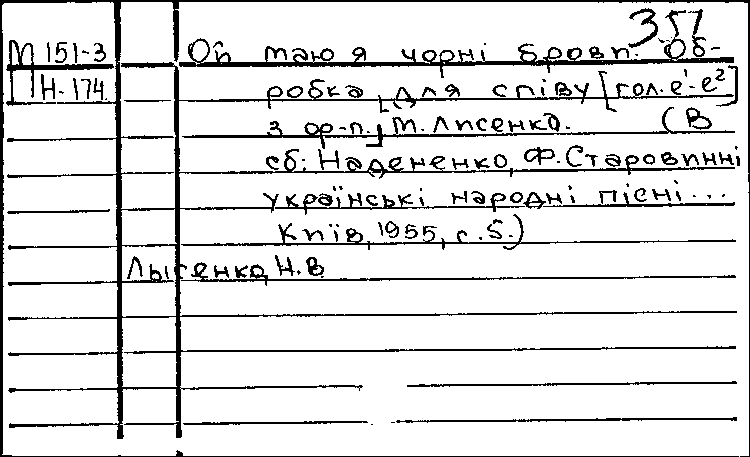 357
М 151-3 Ой маю я чорні брови. Об-
Н-174 робка [для співу [гол. e¹-e²]
з ор-п.] М. Лисенка. (В
сб: Надененко, Ф. Старовинні
українські народні пісні...
Київ, 1955, с. 5.)
Лысенко, Н. В